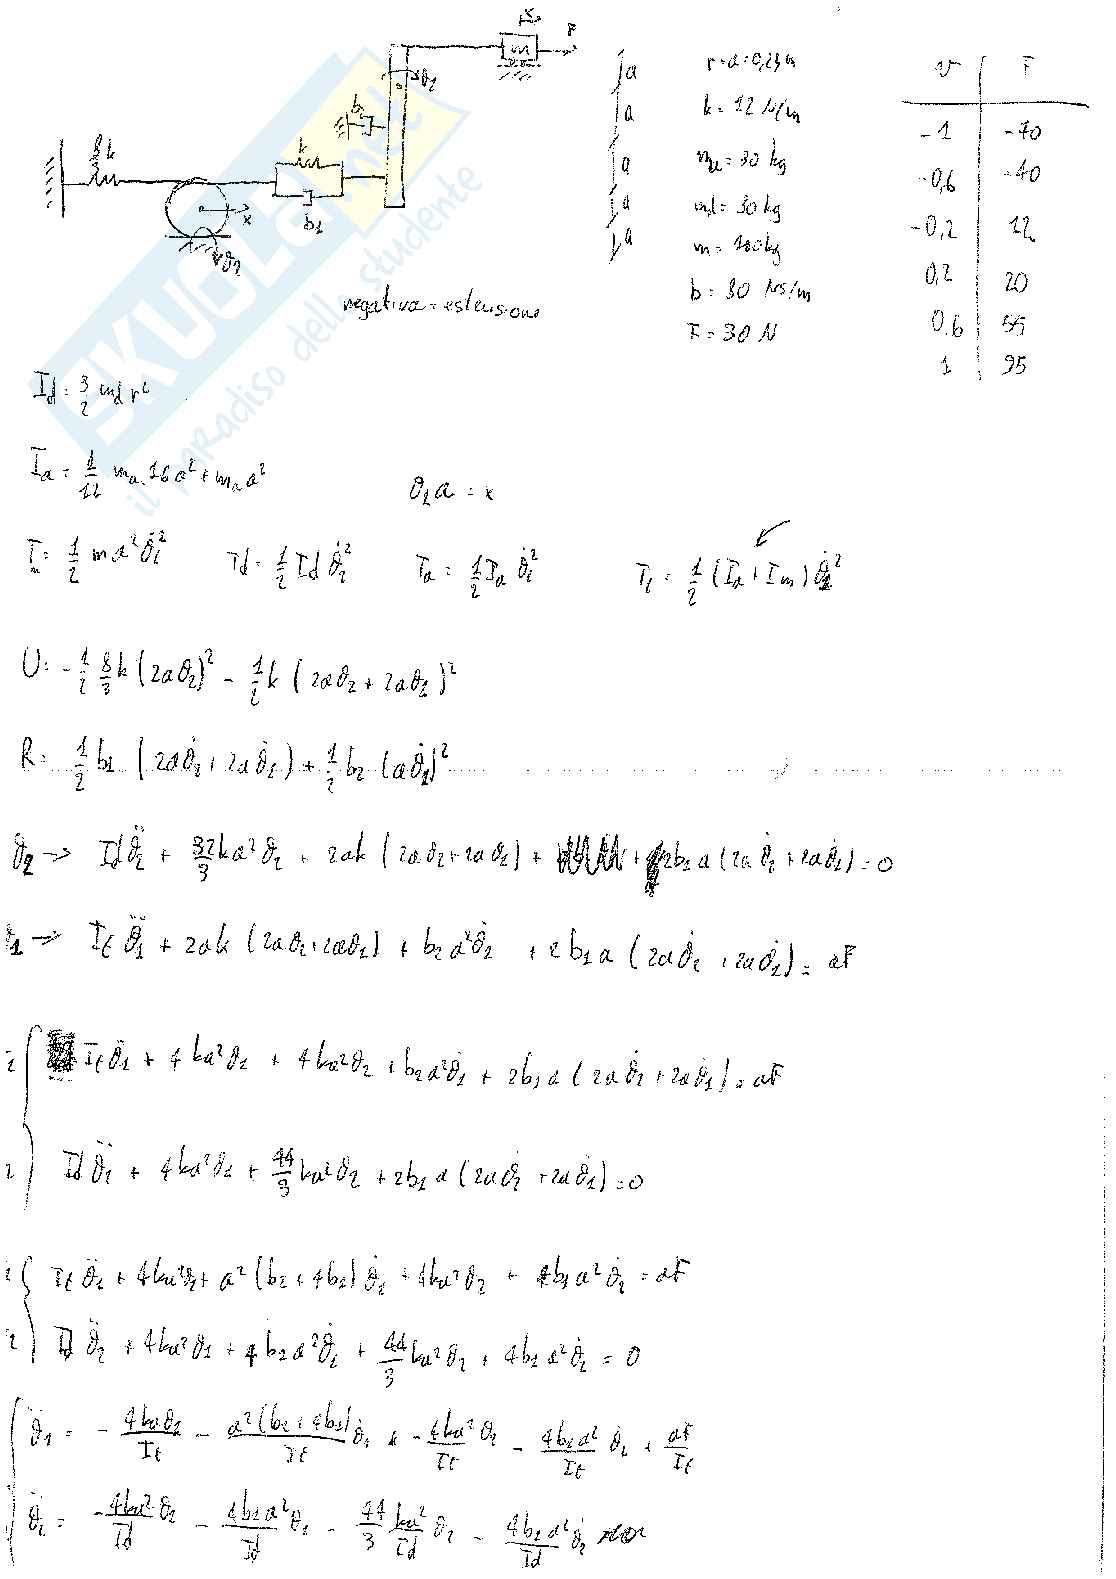 x
F
m
θ1
b2
k
8/3 k
b1
x
θ2
a
a
a
a
a
r = a = 0,25 m
k = 12 N/m
ma = 30 kg
md = 30 kg
m = 100 kg
b = 80 Ns/m
F = 30 N
v F
-1 -70
-0,6 -40
-0,2 12
0,2 20
0,6 55
1 95
negativa = estensione
SKUOLA.net
il paradiso dello studente
Id = 3/2 md r²
Ia = 1/12 ma 16a² + ma a²
θ2 a = x
Tm = 1/2 m a² θ̇1²
Td = 1/2 Id θ̇2²
Ta = 1/2 Ia θ̇1²
Tt = 1/2 (Ia + Im) θ̇1²
U = - 1/2 8/3 k (2aθ2)² - 1/2 k (2aθ2 + 2aθ1)²
R = 1/2 b1 (2aθ̇2 + 2aθ̇1) + 1/2 b2 (aθ̇1)²
θ2 → Id θ̈2 + 32/3 ka² θ2 + 2ak (2aθ2 + 2aθ1) + 2b1 a (2aθ̇2 + 2aθ̇1) = 0
θ1 → It θ̈1 + 2ak (2aθ2 + 2aθ1) + b2 a² θ̇1 + 2b1 a (2aθ̇2 + 2aθ̇1) = aF
It θ̈1 + 4ka² θ1 + 4ka² θ2 + b2 a² θ̇1 + 2b1 a (2aθ̇2 + 2aθ̇1) = aF
Id θ̈2 + 4ka² θ1 + 44/3 ka² θ2 + 2b1 a (2aθ̇2 + 2aθ̇1) = 0
It θ̈1 + 4ka² θ1 + a² (b2 + 4b1) θ̇1 + 4ka² θ2 + 4b1 a² θ̇2 = aF
Id θ̈2 + 4ka² θ1 + 4b1 a² θ̇1 + 44/3 ka² θ2 + 4b1 a² θ̇2 = 0
θ̈1 = - 4ka θ1/It - a² (b2 + 4b1)/It θ̇1 - 4ka²/It θ2 - 4b1 a²/It θ̇2 + aF/It
θ̈2 = - 4ka²/Id θ1 - 4b1 a²/Id θ̇1 - 44/3 ka²/Id θ2 - 4b1 a²/Id θ̇2